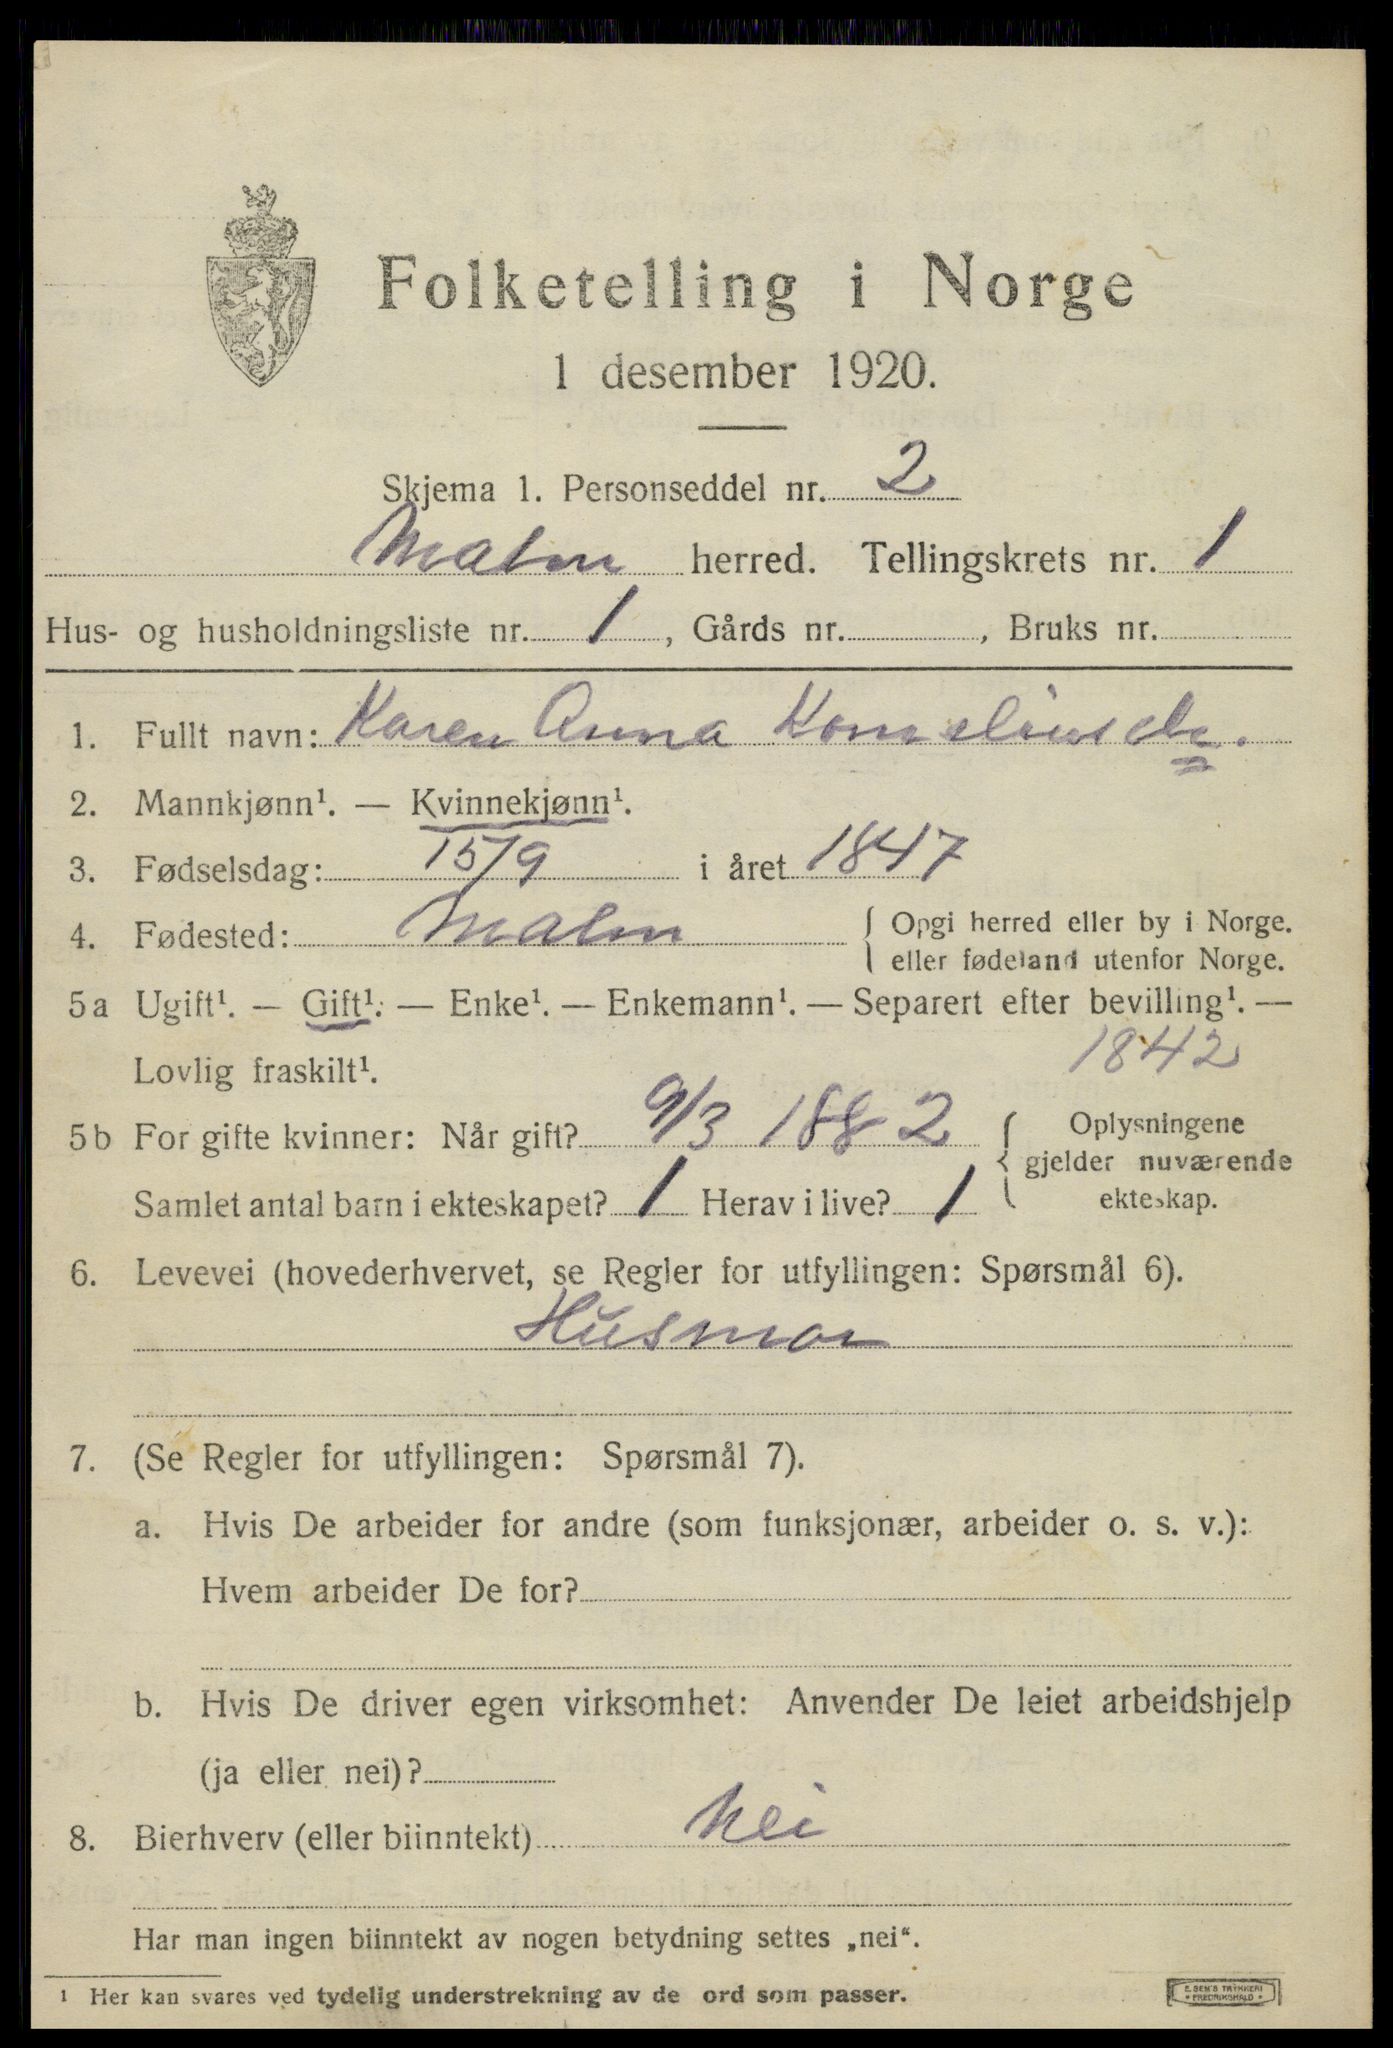 Folketelling i Norge
1 desember 1920.
Skjema 1. Personseddel nr. 2
Malm herred. Tellingskrets nr. 1
Hus- og husholdningsliste nr. 1, Gårds nr. , Bruks nr.
1. Fullt navn: Karen Anna Kornelius dr.
2. Mannkjønn¹. — Kvinnekjønn¹.
3. Fødselsdag: 15/9 i året 1847
4. Fødested: Malm { Opgi herred eller by i Norge.
eller fødeland utenfor Norge.
5a Ugift¹. — Gift¹. — Enke¹. — Enkemann¹. — Separert efter bevilling¹. —
Lovlig fraskilt¹. 1842
5b For gifte kvinner: Når gift? 9/3 1882 { Oplysningene
gjelder nuværende
Samlet antal barn i ekteskapet? 1 Herav i live? 1 ekteskap.
6. Levevei (hovederhvervet, se Regler for utfyllingen: Spørsmål 6).
Husmor
7. (Se Regler for utfyllingen: Spørsmål 7).
a. Hvis De arbeider for andre (som funksjonær, arbeider o. s. v.):
Hvem arbeider De for?
b. Hvis De driver egen virksomhet: Anvender De leiet arbeidshjelp
(ja eller nei)?
8. Bierhverv (eller biinntekt) Nei
Har man ingen biinntekt av nogen betydning settes „nei“.
¹ Her kan svares ved tydelig understrekning av de ord som passer.
E. SEM'S TRYKKERI
FREDRIKSHALD